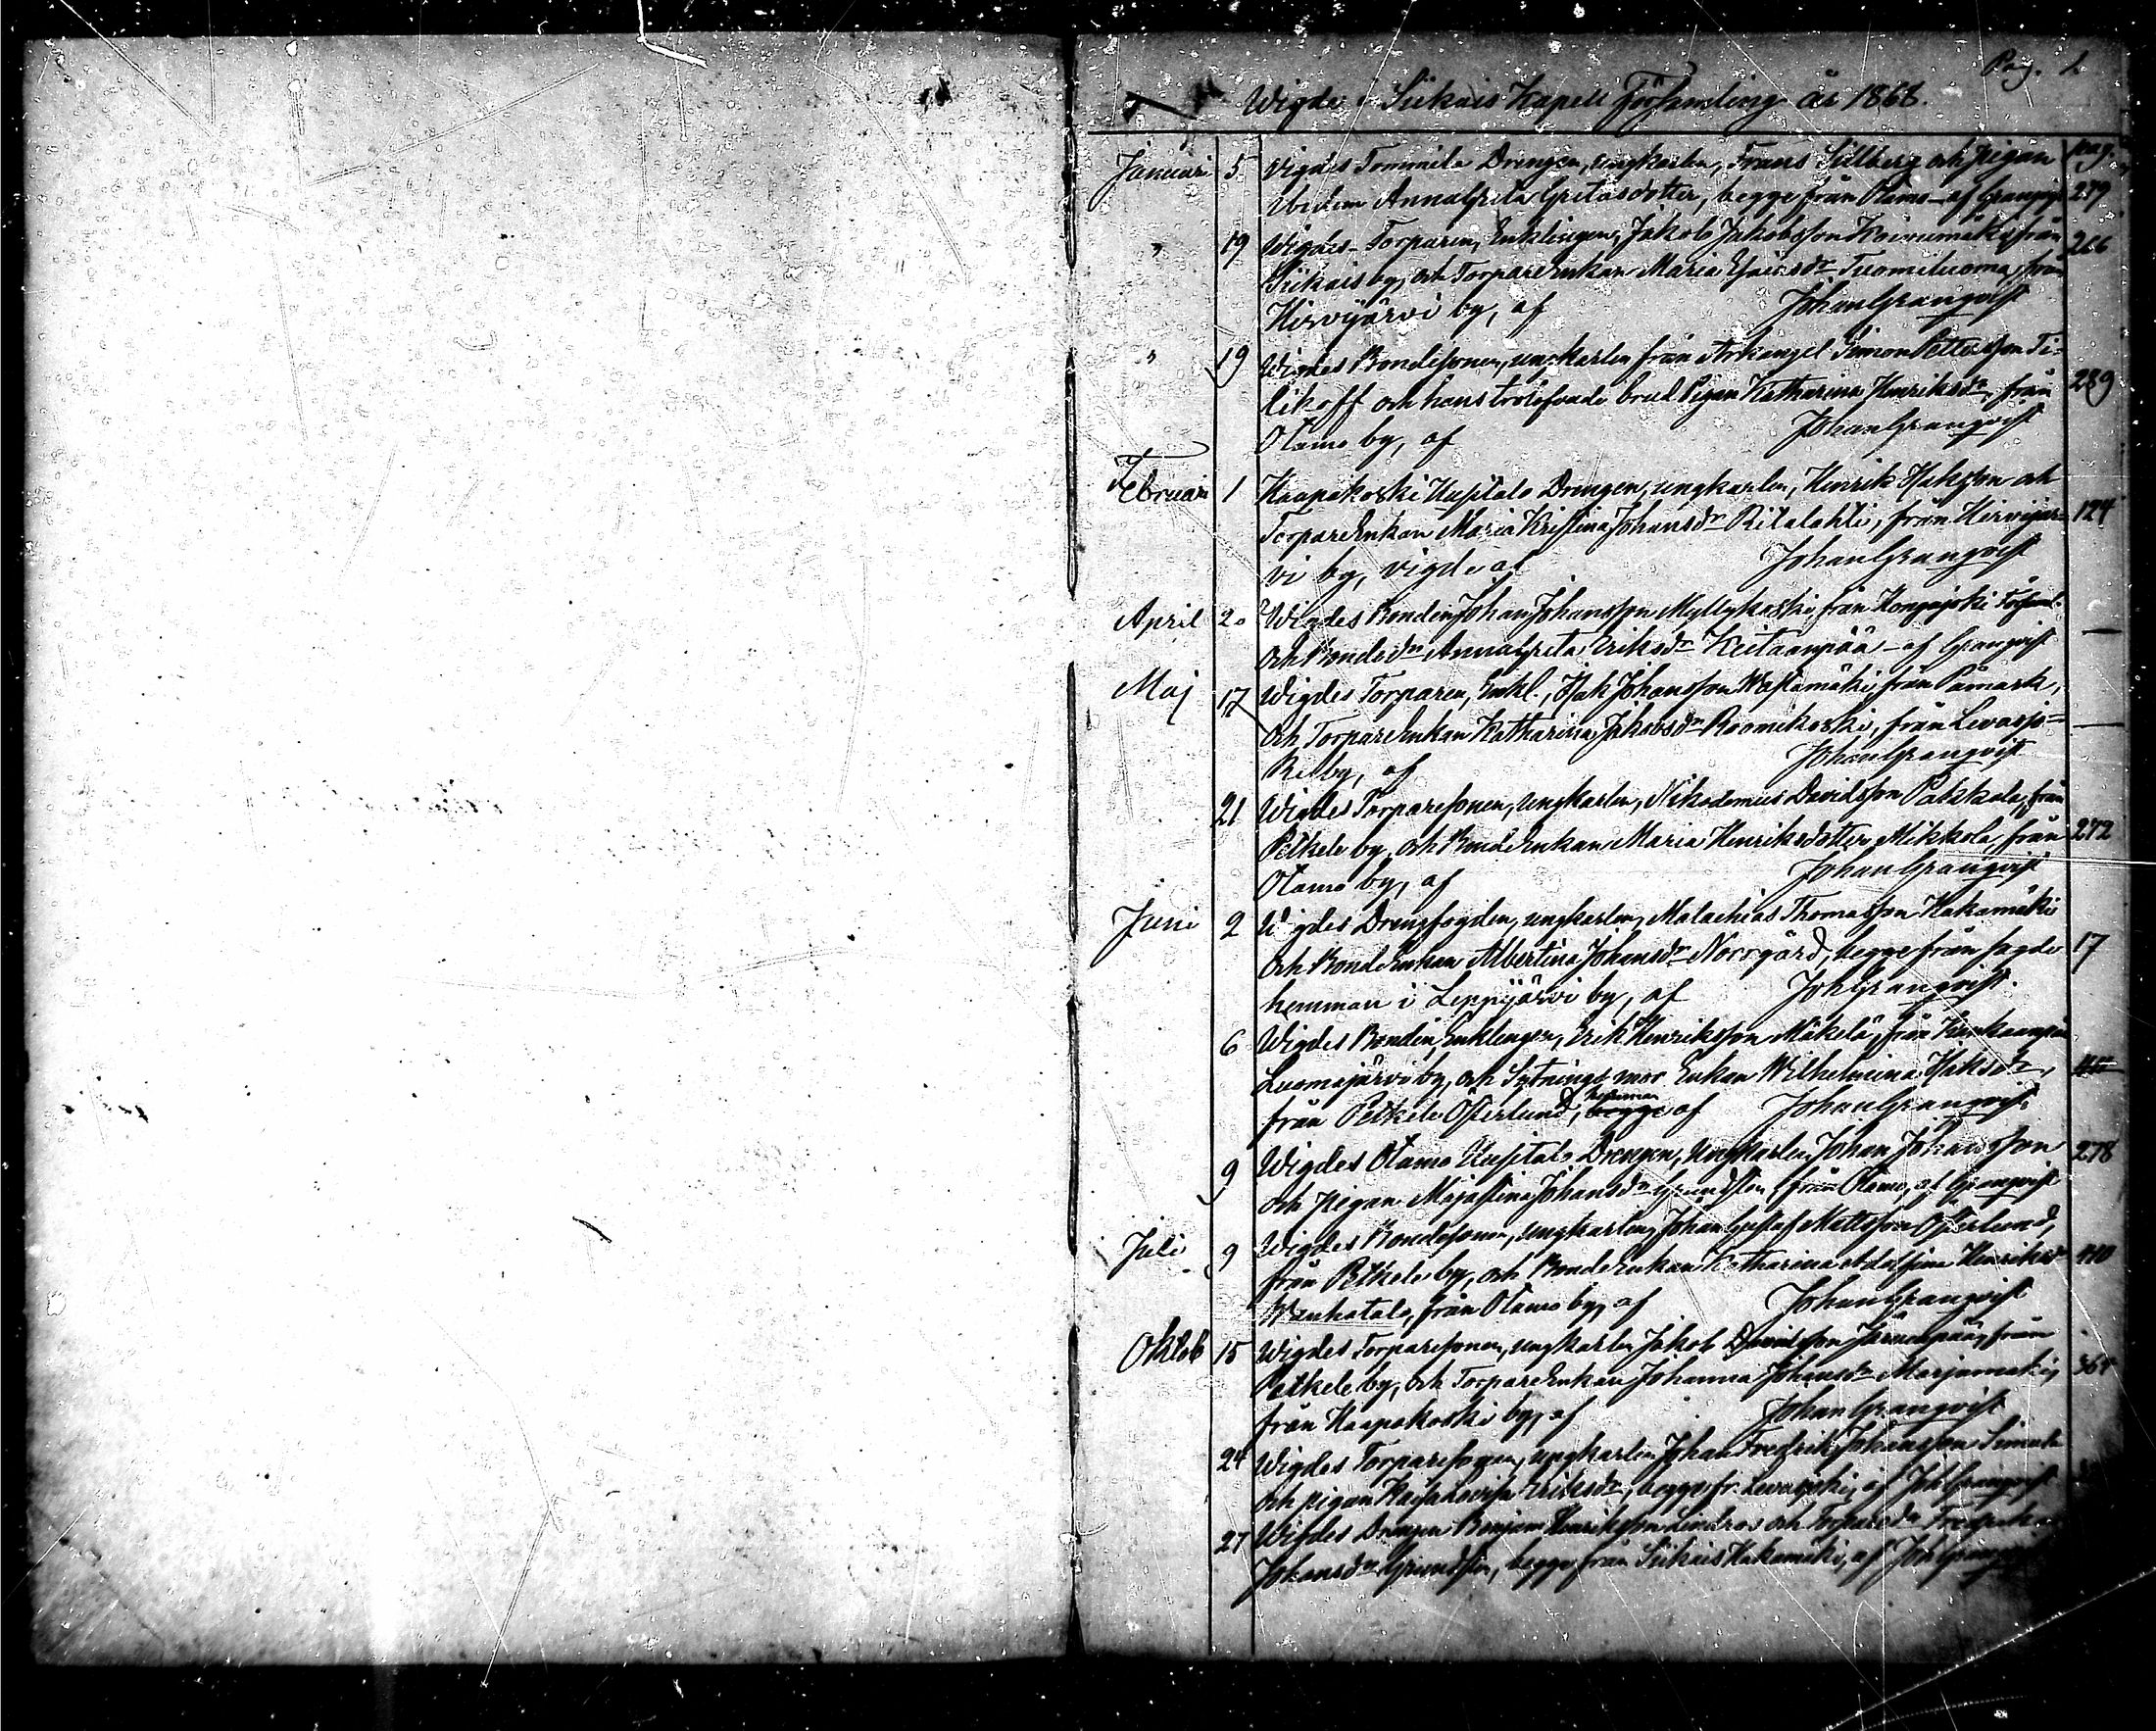 Pag. 1
Wigde i Siikais Kapell Församling år 1868.
pag.
Januari 5 Vigdes Tommila Drengen, ungkarlen, Frans Sillberg och pigan
ibidem Anna Greta Gretasdotter, begge från Otamo - af Granqvist 279
" 19 Wigdes Torparen, Enklingen, Jakob Jakobsson Koivumäki från 266
Siikais by, och TorpareEnkan Maria Esaiasdr Tuomiluoma, från
Hirvijärvi by, af Johan Granqvist
" 19 Wigdes Bondesonen, ungkarlen från Arkangel Simon Pettersson Ti-
likoff och hans trolofvade brud Pigan Katharina Henriksdr, från 289
Otamo by, af Johan Granqvist
Februari 1 Kaapakoski Uusitalo Drengen, ungkarlen, Henrik Isaksson och
TorpareEnkan Maria Kristina Johansdr Ritalahti, från Hirvijär- 124
vi by, vigde af Johan Granqvist
April 20 Wigdes Bonden Johan Johansson Myllykoski från Honga joki Församl.
och Bondedr Anna Greta Eriksdr Keitaanpää - af Granqvist —
Maj 17 Wigdes Torparen, Enkl., Isak Johansson Wästämäki, från Påmark,
och TorpareEnkan Katharina Jakobsdr Roomikoski, från Levasjo- —
ki by, af Johan Granqvist
21 Wigdes Torparesonen, ungkarlen, Nikodemus Davidsson Pakkala, från
Petkele by, och BondeEnkan Maria Henriksdotter Mikkola, från 272
Otamo by, af Johan Granqvist
Juni 2 Wigdes Drengfogden, ungkarlen, Malachias Thomasson Hakamäki
och BondEnkan Albertina Johansdr Norrgård, begge från sagde 17
hemman i Leppijärvi by, af Joh Granqvist.
6 Wigdes Bonden, Enklingen, Erik Henriksson Mäkelä, från Kankaanpää
Luomajärvi by, och Sytningsmor Enkan Wilhelmina Isaksdr,
från Petkele Österlund, hemman begge af Johan Granqvist
9 Wigdes Otamo Uusitalo Drengen, Ungkarlen Johan Johansson 278
och pigan Maja Stina Johansdr Grundsten från Otamo, af Granqvist
Juli 9 Wigdes Bondesonen, ungkarlen, Johan Gustaf Mattsson Österlund,
från Petkele by, och BondeEnkan Katharina Adolfina Henriksdr 410
Wanhatalo, från Otamo by, af Johan Granqvist
Oktob 15 Wigdes Torparesonen, ungkarlen Jakob Davidsson Järvenpää, från
Petkele by, och TorpareEnkan Johanna Johansdr Marjamäki, 364
från Kaapakoski by, af Johan Granqvist
24 Wigdes Torparesonen, ungkarlen Johan Fredrik Johansson Simula
och pigan Kajsa Lovisa Eriksdr, begge fr. Levasjoki, af Joh Granqvist
27 Wigdes Drengen Benjam Henriksson Lindros och Torparedr Fredrika
Johansdr Grundsten, begge från Siikais Hakamäki, af Joh Granqvist